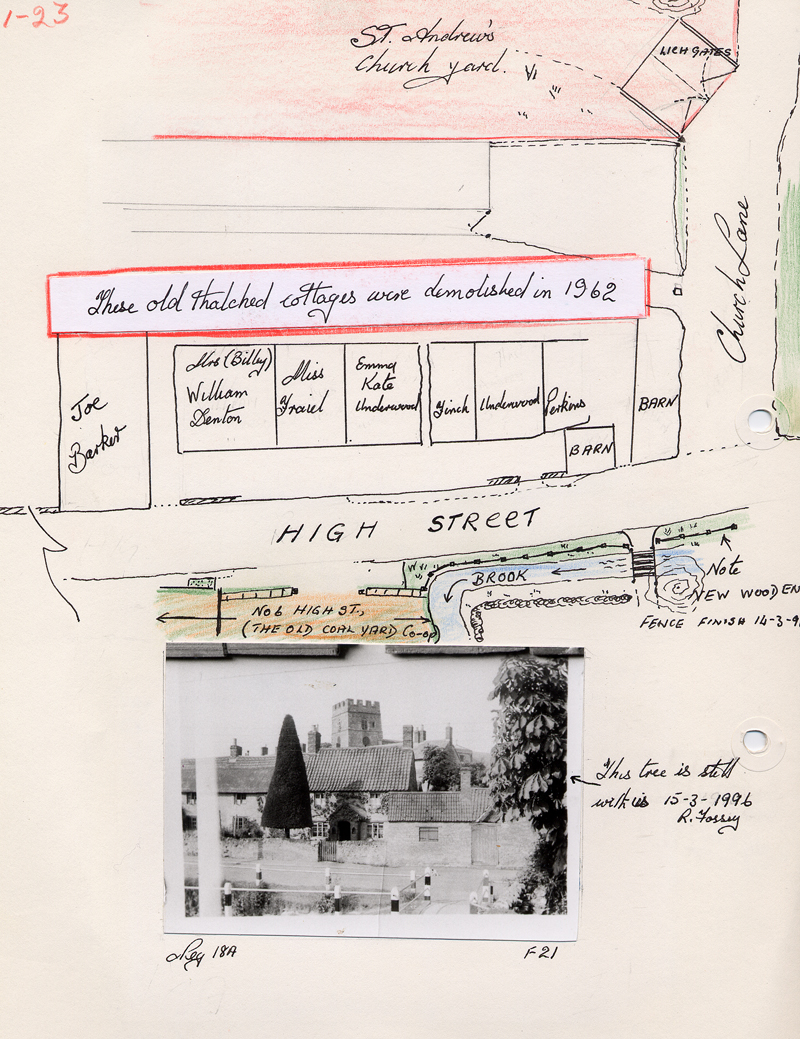 1-23
ST. Andrew's
Church yard.
LICHGATES
Church Lane
These old thatched cottages were demolished in 1962
Joe
Barker
Mrs (Billy)
William
Denton
Miss
Emma
Kate
Underwood
Finch
Underwood
Perkins
BARN
BARN
HIGH STREET
BROOK
Note
NEW WOODEN
FENCE FINISH 14-3-9
No 6 HIGH ST,
(THE OLD COAL YARD Co-op)
This tree is still
with us 15-3-1996
R. Fossey
Neg 18A
F21